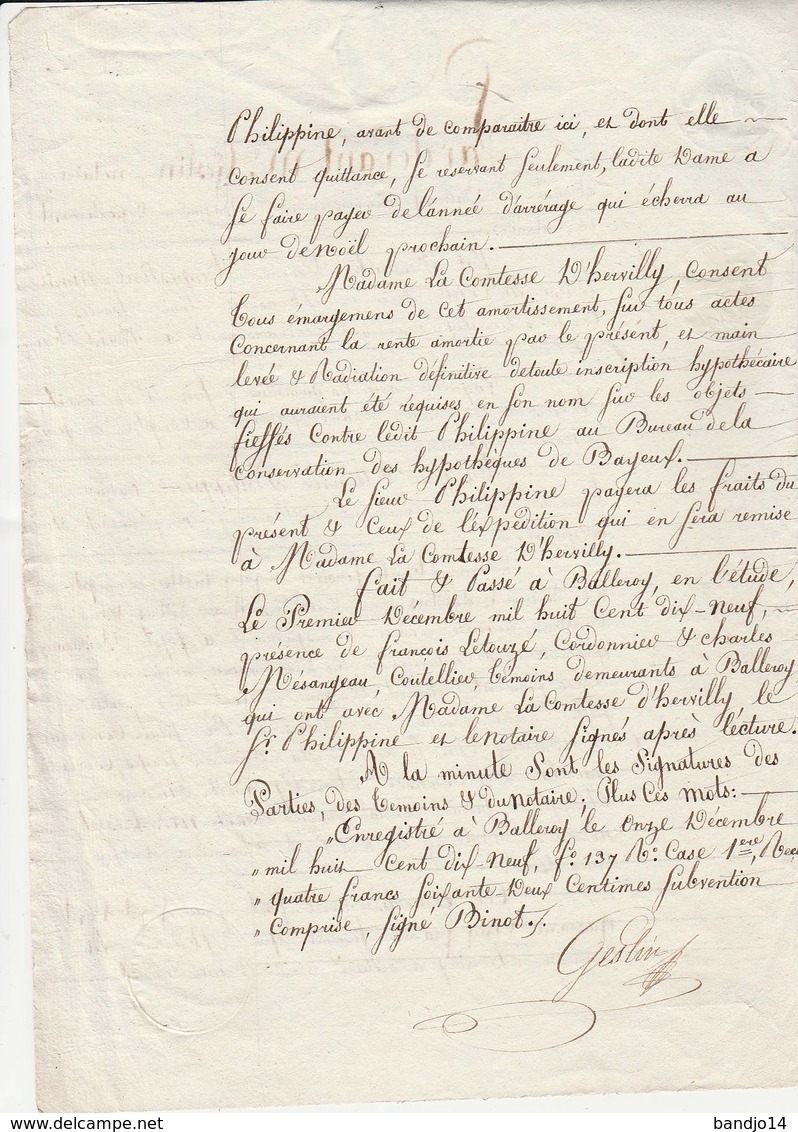 Philippine, avant de comparaitre ici, et dont elle
consent quittance, Se reservant Seulement, ladite Dame a
Se faire payer de l'anneé d'arrérage qui écherra au
jour de noël prochain.
Madame La Comtesse D'hervilly, Consent
tous émargemens de cet amortissement, Sur tous actes
Concernant la rente amortie par le présent, et main
levée & Radiation définitive de toute inscription hypothécaire
qui auraient été requises en son nom Sur les objets
fieffés Contre ledit Philippine au Bureau de la
Conservation des hypothèques de Bayeux.
Le Sieur Philippine payera les fraits du
présent & Ceux de l'éxpédition qui en Sera remise
à Madame La Comtesse D'hervilly.
fait & Passé à Balleroy, en l'étude,
Le Premier Décembre mil huit Cent dix-neuf,
présence de françois Letouzé, Cordonnier & charles
Mésangeau, Coutellier, témoins demeurants à Balleroy
qui ont avec Madame La Comtesse d'hervilly, le
Sr. Philippine et le notaire Signés après lécture.
A la minute Sont les Signatures des
Parties, des temoins & du notaire; Plus Ces mots:
"Enregistré à Balleroy le onze Décembre
" mil huit Cent Dix-Neuf, fo. 137 Vo. Case 1ere, Reçu
" quatre francs Soixante-Deux Centimes Subvention
" Comprise, Signé Binot./.
Geslin
delcampe.net
bandjo14